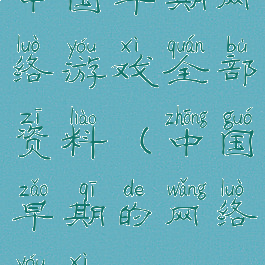 中国早期网
luò yóu xì quán bù
络游戏全部
zī liào zhōng guó
资料（中国
zǎo qī de wǎng luò
早期的网络
yóu xì